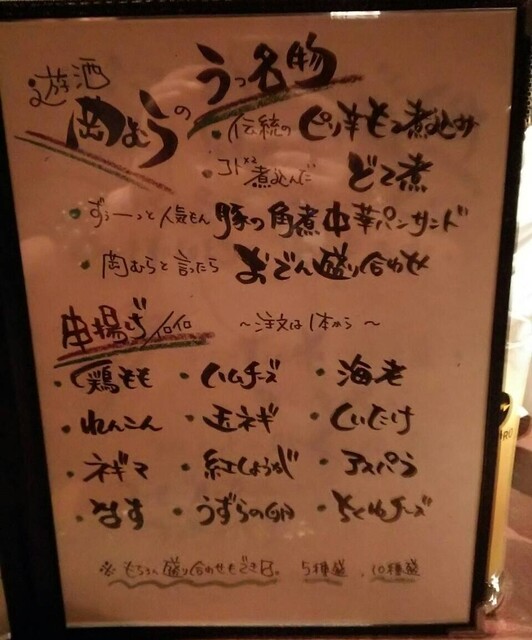 遊酒 岡むらのうっ名物
・伝統の ピリ辛もつ煮込み
・コトコト煮込んだ どて煮
・ずぅーっと人気もん 豚の角煮中華パンサンド
・岡むらと言ったら おでん盛り合わせ
串揚げ/イロイロ 〜注文は1本から〜
・鶏もも ・ハムチーズ ・海老
・れんこん ・玉ネギ ・しいたけ
・ネギマ ・紅しょうが ・アスパラ
・なす ・うずらの卵 ・ちくわチーズ
※もちろん盛り合わせもできます。 5種盛、10種盛